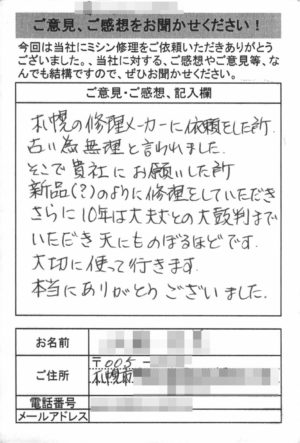 ご意見、ご感想をお聞かせください！
今回は当社にミシン修理をご依頼いただきありがとう
ございました。、当社に対する、ご感想やご意見等、な
んでも結構ですので、ぜひお聞かせください。
ご意見・ご感想、記入欄
札幌の修理メーカーに依頼をした所
占い為無理と言われました.
そこで貴社にお願いした所
新品(?)のように修理をしていただき
さらに10年は大丈夫との大鼓判まで
いただき天にものぼるほどです.
大切に使って行きます.
本当にありがとうございました.
お名前
ご住所
〒005-
札幌市
電話番号
メールアドレス